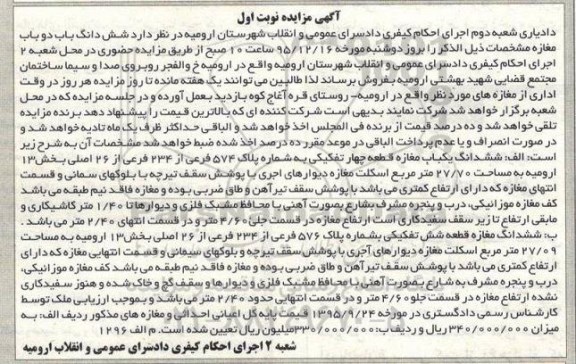 آگهی مزایده نوبت اول
دادیاری شعبه دوم اجرای احکام کیفری دادسرای عمومی و انقلاب شهرستان ارومیه در نظر دارد شش دانگ باب دو باب
مغازه مشخصات ذیل الذکر را بروز دوشنبه مورخه ۹۵/۱۲/۱۶ ساعت ۱۰ صبح از طریق مزایده حضوری در محل شعبه ۲
اجرای احکام کیفری دادسرای عمومی و انقلاب شهرستان ارومیه واقع در ارومیه خ والفجر روبروی صدا و سیما ساختمان
مجتمع قضایی شهید بهشتی ارومیه بفروش برساند لذا طالبین می توانند یک هفته مانده تا روز مزایده هر روز در وقت
اداری از مغازه های مورد نظر واقع در ارومیه- روستای قره آغاج کوه بازدید بعمل آورده و در جلسه مزایده که در محل
شعبه برگزار خواهد شد شرکت نمایند بدیهی است شرکت کننده ای که بالاترین قیمت را پیشنهاد دهد برنده مزایده
تلقی خواهد شد و ده درصد قیمت از برنده فی المجلس اخذ خواهد شد و الباقی حداکثر ظرف یک ماه تادیه خواهد شد و
در صورت انصراف و یا عدم پرداخت الباقی در موعد مقرر ده درصد اخذ شده ضبط خواهد شد مشخصات آن به شرح زیر
است: الف: ششدانگ یکباب مغازه قطعه چهار تفکیکی به شماره پلاک ۵۷۴ فرعی از ۲۳۴ فرعی از ۲۶ اصلی بخش ۱۳
ارومیه به مساحت ۲۷/۷۰ متر مربع اسکلت مغازه دیوارهای آجری با پوشش سقف تیرچه با بلوکهای سمانی و قسمت
انتهای مغازه که دارای ارتفاع کمتری می باشد با پوشش سقف تیرآهن و طاق ضربی بوده و مغازه فاقد نیم طبقه می باشد
کف مغازه موزائیکی، درب و پنجره مشرف بشارع بصورت آهنی با محافظ مشبک فلزی و دیوارها تا ۱/۴۰ متر کاشیکاری و
مابقی ارتفاع تا زیر سقف سفیدکاری است ارتفاع مغازه در قسمت جلی ۴/۶۰ متر و در قسمت انتهای ۲/۴۰ متر می باشد.
ب: ششدانگ مغازه قطعه شش تفکیکی بشماره پلاک ۵۷۶ فرعی از ۲۳۴ فرعی از ۲۶ اصلی بخش ۱۳ ارومیه به مساحت
۲۷/۰۹ متر مربع اسکلت مغازه دیوارهای آجری با پوشش سقف تیرچه و بلوکهای سیمانی و قسمت انتهایی مغازه که دارای
ارتفاع کمتری می باشد با پوشش سقف تیرآهن و طاق ضربی بوده و مغازه فاقد نیم طبقه می باشد کف مغازه موزائیکی،
درب و پنجره مشرف به شارع بصورت آهنی با محافظ مشبک فلزی و دیوارها و سقف گچ و خاک شده و هنوز سفیدکاری
نشده ارتفاع مغازه در قسمت جلو ۴/۶۰ متر و در قسمت انتهایی حدود ۲/۴۰ متر می باشد و بموجب ارزیابی ملک توسط
کارشناس رسمی دادگستری در مورخه ۱۳۹۵/۹/۲۴ قیمت پایه کل اعیانی احداثی و مغازه های مذکور ردیف الف: به
میزان ۳۴۰/۰۰۰/۰۰۰ ریال و ردیف ب: ۳۳۰/۰۰۰/۰۰۰ میلیون ریال تعیین شده است. م الف ۱۲۹۶
شعبه ۲ اجرای احکام کیفری دادسرای عمومی و انقلاب ارومیه